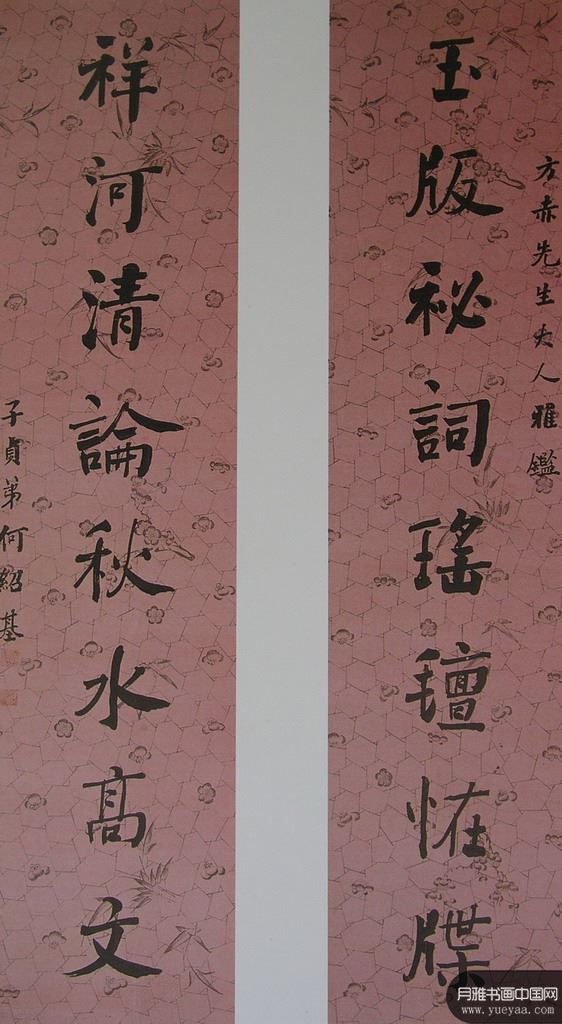 方赤先生大人雅鑑
玉版秘詞瑤氊怪牒
祥河清論秋水高文
子貞弟何紹基
月雅书画中国网
www.yueyaa.com